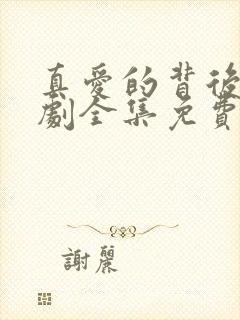 真愛的背後
劇全集免費
謝麗